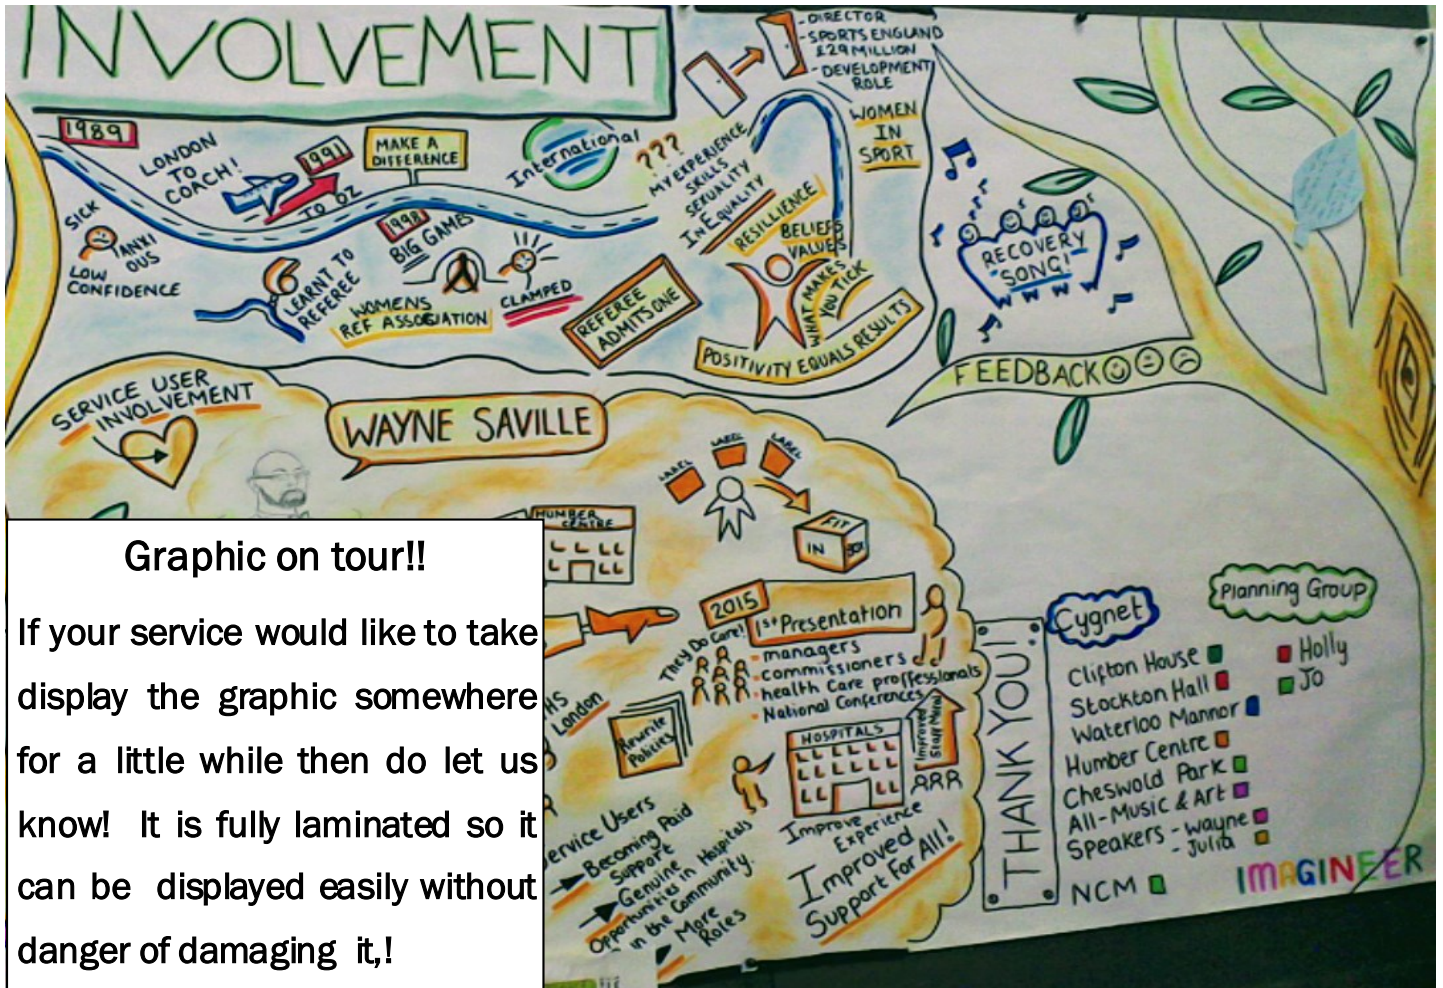 INVOLVEMENT
1989
LONDON
TO
COACH!
1991
TO OZ
MAKE A
DIFFERENCE
International
SICK
ANXI
OUS
LOW
CONFIDENCE
LEARNT TO
REFEREE
1998
BIG GAMES
WOMENS
REF ASSOCIATION
CLAMPED
REFEREE
ADMITS ONE
???
MY EXPERIENCE
SKILLS
SEXUALITY
INEQUALITY
RESILLIENCE
BELIEFS
VALUES
WHAT MAKES
YOU TICK
POSITIVITY EQUALS RESULTS
- DIRECTOR
- SPORTS ENGLAND
£29 MILLION
- DEVELOPMENT
ROLE
WOMEN
IN
SPORT
RECOVERY
SONG!
FEEDBACK
SERVICE USER
INVOLVEMENT
WAYNE SAVILLE
LABEL
LABEL
LABEL
FIT
IN BOX
HUMBER
CENTRE
2015
1st Presentation
They Do Care!
- managers
- commissioners
- health Care proffessionals
- National Conferences
London
Rewrite
Policies
HOSPITALS
Improved
Staff Moral
Improve
Experience
Improved
Support For All!
Service Users
Becoming Paid
Support
Genuine
Opportunities in Hospitals
in the Community.
More
Roles
THANK YOU!
Cygnet
Clifton House
Stockton Hall
Waterloo Mannor
Humber Centre
Cheswold Park
All-Music & Art
Speakers - Wayne
- Julia
NCM
Planning Group
Holly
Jo
IMAGINEER
Graphic on tour!!
If your service would like to take
display the graphic somewhere
for a little while then do let us
know! It is fully laminated so it
can be displayed easily without
danger of damaging it,!